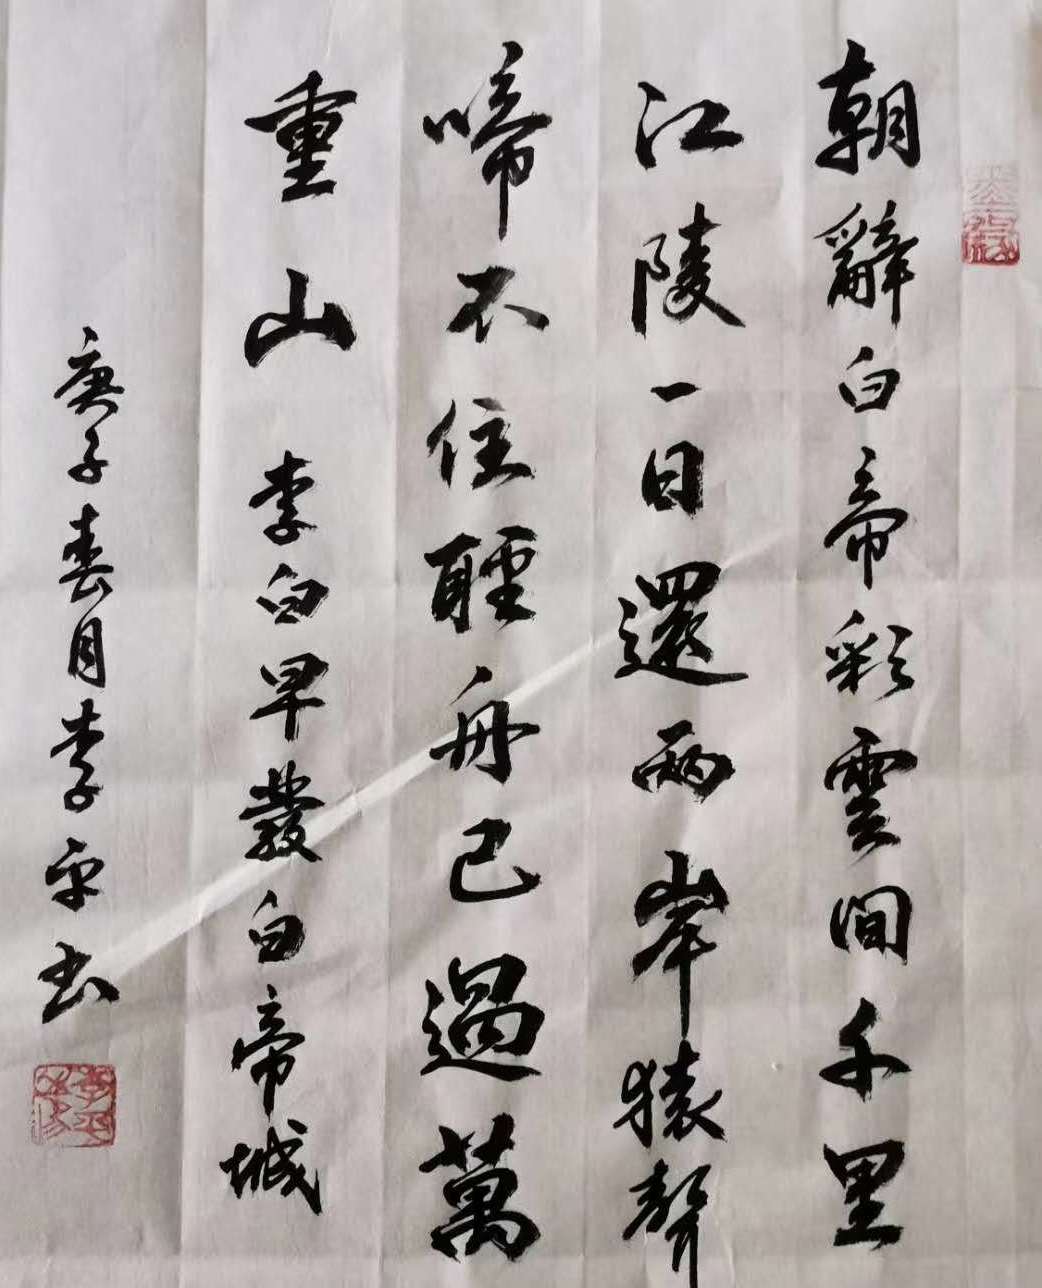 朝辭白帝彩雲間千里
江陵一日還兩岸猿聲
啼不住輕舟已過萬
重山 李白早發白帝城
庚子春月李平书